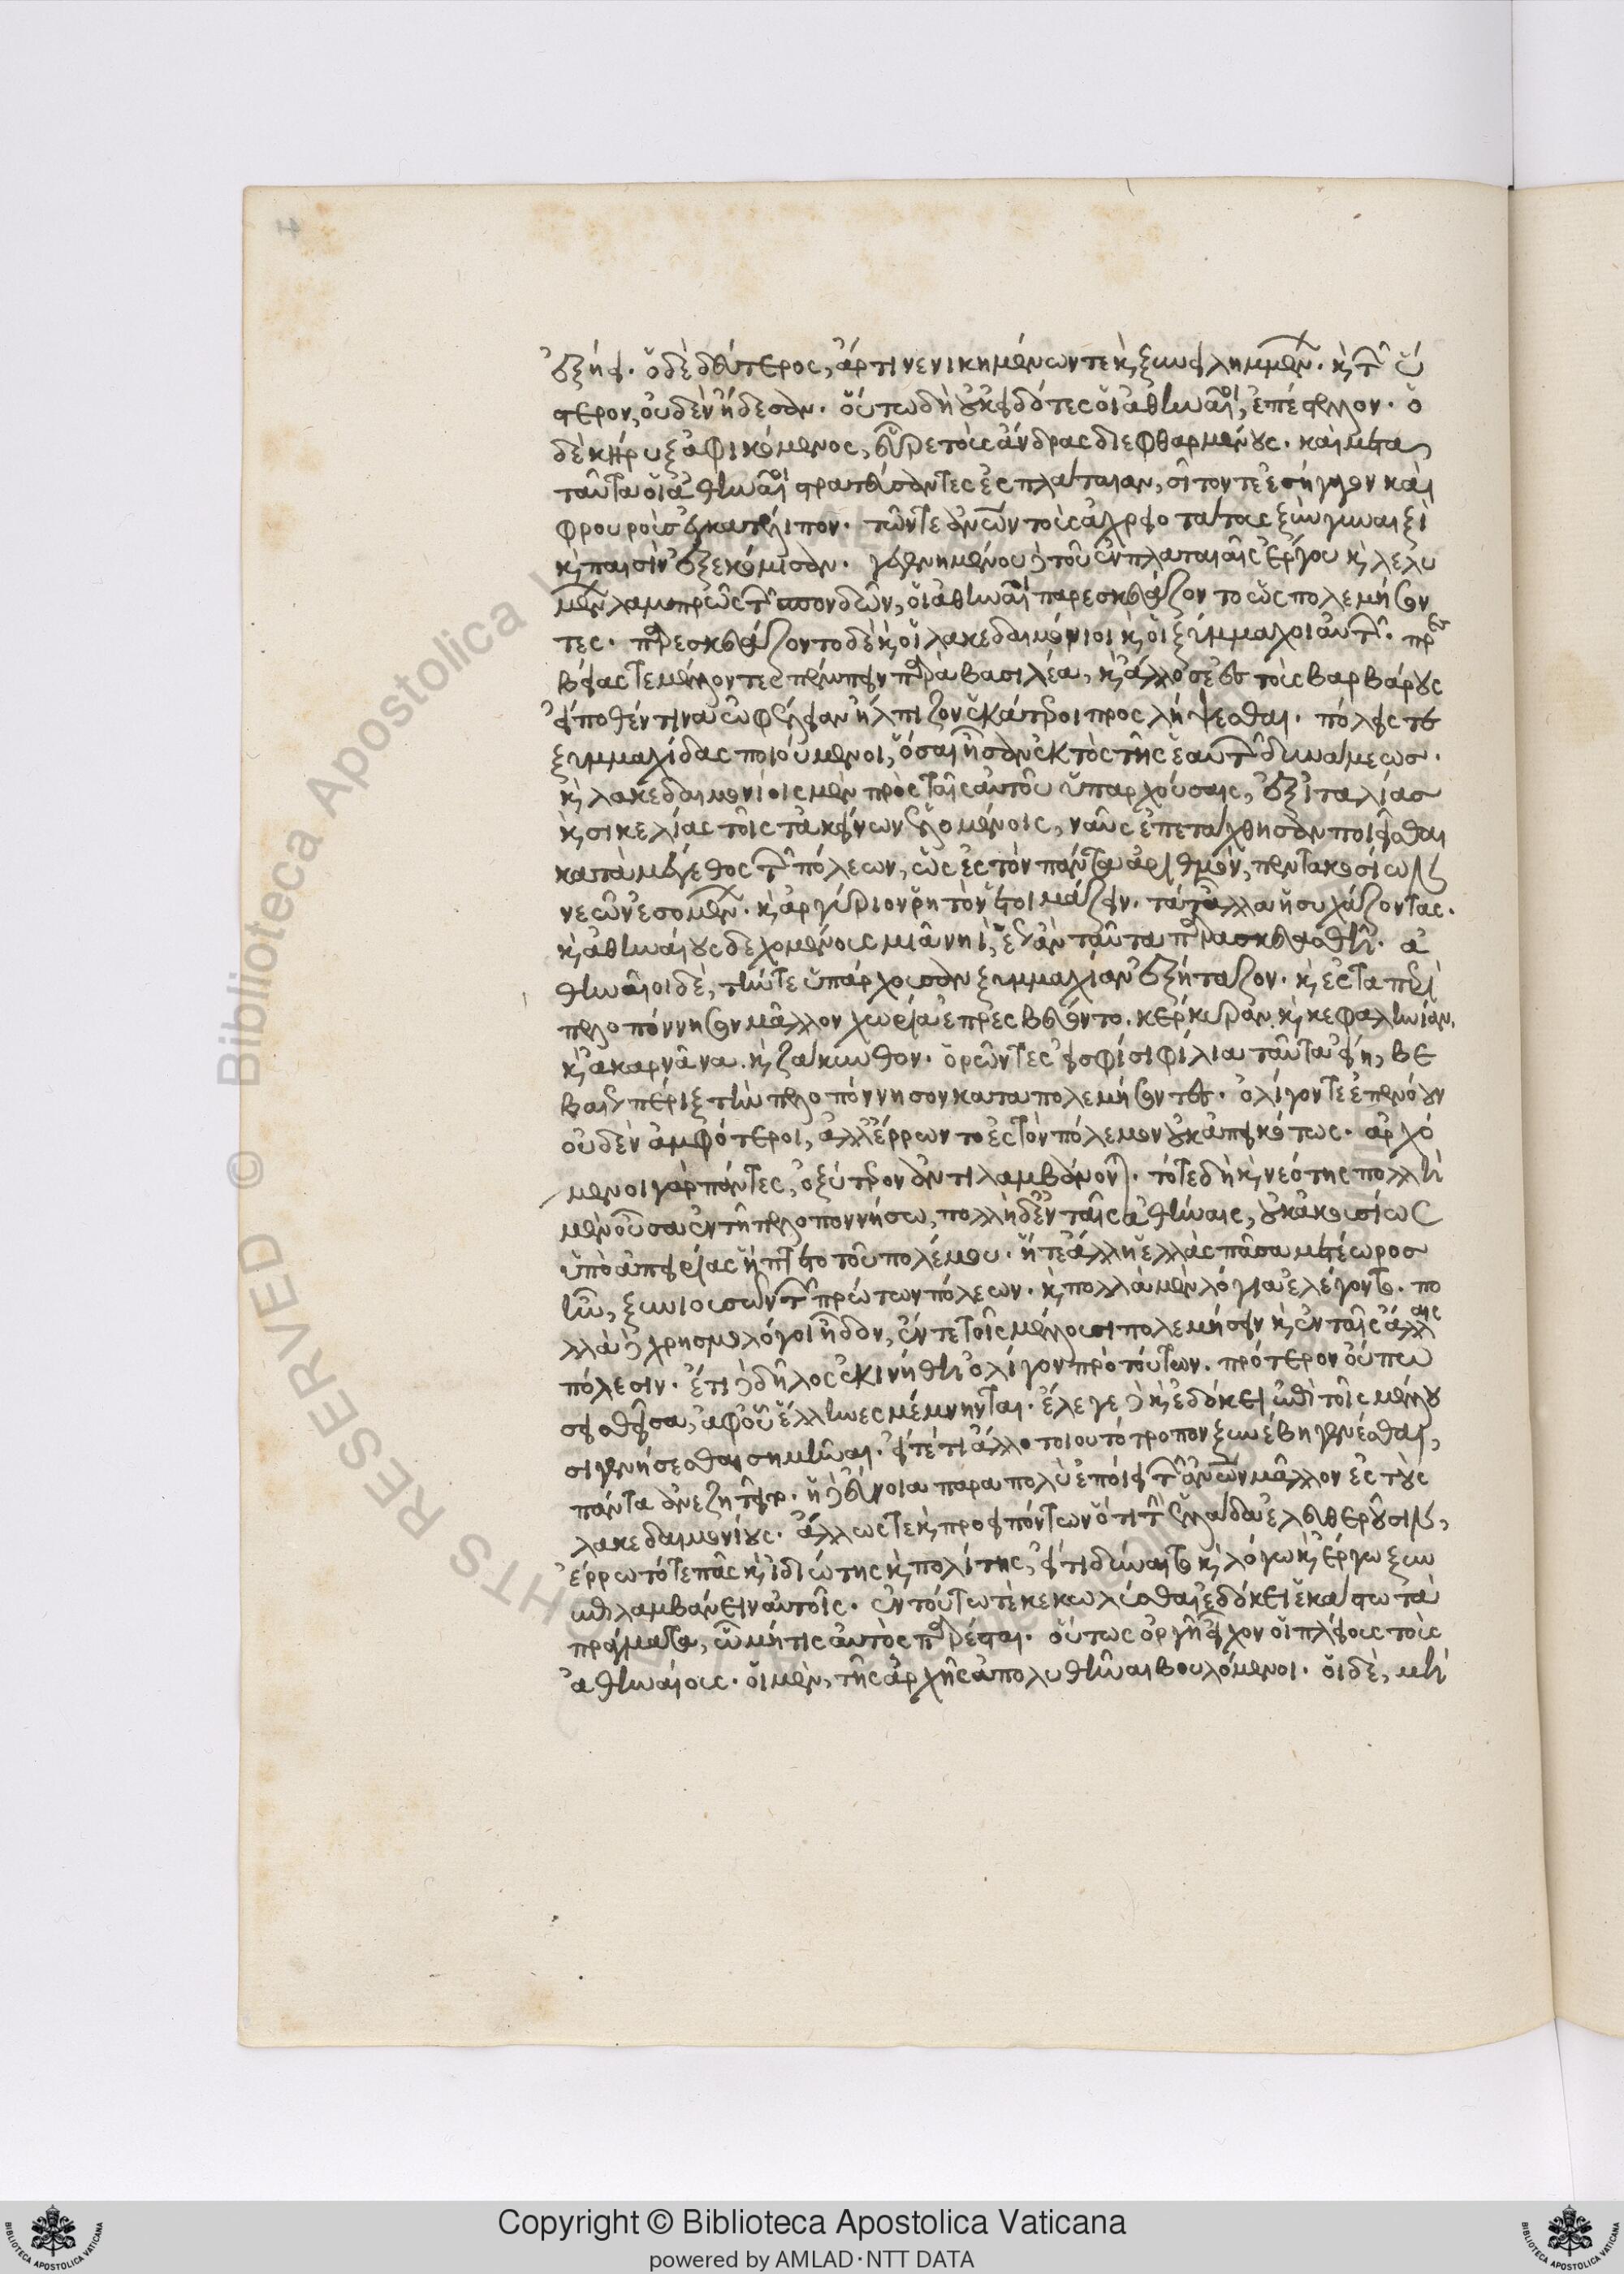 ἐξῄει. ὁ δὲ δεύτερος, ἄρτι νενικημένων τε καὶ ξυνειλημμένων. καὶ τῶν ὕ
στερον, οὐδὲν ᾔδεσαν. οὕτω δὴ οὐκ εἰδότες οἱ ἀθηναῖοι, ἐπέστελλον. ὁ
δὲ κῆρυξ ἀφικόμενος, εὗρε τοὺς ἄνδρας διεφθαρμένους. καὶ μετὰ
ταῦτα οἱ ἀθηναῖοι στρατεύσαντες ἐς πλάταιαν, σῖτόν τε ἐσήγαγον καὶ
φρουροὺς ἐγκατέλιπον. τῶν τε ἀνθρώπων τοὺς ἀχρειοτάτους ξὺν γυναιξὶ
καὶ παισὶν ἐξεκόμισαν. γεγενημένου δὲ τοῦ ἐν πλαταιαῖς ἔργου καὶ λελυ
μένων λαμπρῶς τῶν σπονδῶν, οἱ ἀθηναῖοι παρεσκευάζοντο ὡς πολεμήσον
τες. παρεσκευάζοντο δὲ καὶ οἱ λακεδαιμόνιοι καὶ οἱ ξύμμαχοι αὐτῶν. πρεσ
βείας τε μέλλοντες πέμπειν παρὰ βασιλέα, καὶ ἄλλοσε ἐς τοὺς βαρβάρους
εἴ ποθέν τινα ὠφέλειαν ἤλπιζον ἑκάτεροι προσλήψεσθαι. πόλεις τε
ξυμμαχίδας ποιούμενοι, ὅσαι ἦσαν ἐκτὸς τῆς ἑαυτῶν δυνάμεως.
καὶ λακεδαιμονίοις μὲν πρὸς ταῖς αὐτοῦ ὑπαρχούσαις, ἐξ ἰταλίας
καὶ σικελίας τοῖς τἀκείνων ἑλομένοις, ναῦς ἐπετάχθησαν ποιεῖσθαι
κατὰ μέγεθος τῶν πόλεων, ὡς ἐς τὸν πάντα ἀριθμὸν, πεντακοσίων
νεῶν ἐσομένων. καὶ ἀργύριον ῥητὸν ἑτοιμάζειν. τά τ' ἄλλα ἡσυχάζοντας.
καὶ ἀθηναίους δεχομένους μιᾷ νηῒ, ἕως ἂν ταῦτα παρασκευασθῇ. ἀ
θηναῖοι δὲ, τήν τε ὑπάρχουσαν ξυμμαχίαν ἐξήταζον. καὶ ἐς τὰ περὶ
πελοπόννησον μᾶλλον χωρία ἐπρεσβεύοντο. κέρκυραν. καὶ κεφαλληνίαν.
καὶ ἀκαρνᾶνα. καὶ ζάκυνθον. ὁρῶντες εἰ σφίσι φίλια ταῦτα εἴη, βε
βαίως πέριξ τὴν πελοπόννησον καταπολεμήσοντες. ὀλίγον τε ἐπενόουν
οὐδὲν ἀμφότεροι, ἀλλ' ἔρρωντο ἐς τὸν πόλεμον οὐκ ἀπεικότως. ἀρχό
μενοι γὰρ πάντες, ὀξύτερον ἀντιλαμβάνονται. τότε δὴ καὶ νεότης πολλὴ
μὲν οὖσα ἐν τῇ πελοποννήσω, πολλὴ δ' ἐν ταῖς ἀθήναις, οὐκ ἀκουσίως
ὑπὸ ἀπειρίας ἥπτετο τοῦ πολέμου. ἥ τε ἄλλη ἑλλὰς πᾶσα μετέωρος
ἦν, ξυνιουσῶν τῶν πρώτων πόλεων. καὶ πολλὰ μὲν λόγια ἐλέγοντο. πο
λλὰ δὲ χρησμολόγοι ᾖδον, ἔν τε τοῖς μέλλουσι πολεμήσειν καὶ ἐν ταῖς ἄλλαις
πόλεσιν. ἔτι δὲ δῆλος ἐκινήθη ὀλίγον πρὸ τούτων. πρότερον οὔπω
σεισθεῖσα, ἀφ' οὗ ἕλληνες μέμνηνται. ἐλέγετο δὲ καὶ ἐδόκει ἐπὶ τοῖς μέλλου
σι γενήσεσθαι σημῆναι. εἴ τέ τι ἄλλο τοιουτότροπον ξυνέβη γενέσθαι,
πάντα ἀνεζητεῖτο. ἡ δὲ εὔνοια παρὰ πολὺ ἐποίει τῶν ἀνθρώπων μᾶλλον ἐς τοὺς
λακεδαιμονίους. ἄλλως τε καὶ προειπόντων ὅτι τὴν ἑλλάδα ἐλευθεροῦσιν,
ἔρρωτό τε πᾶς καὶ ἰδιώτης καὶ πολίτης, εἴ τι δύναιτο καὶ λόγω καὶ ἔργω ξυν
επιλαμβάνειν αὐτοῖς. ἐν τούτω τε κεκωλύσθαι ἐδόκει ἑκάστω τὰ
πράγματα, ᾧ μή τις αὐτὸς παρέσται. οὕτως ὀργῇ εἶχον οἱ πλείους τοὺς
ἀθηναίους. οἱ μὲν, τῆς ἀρχῆς ἀπολυθῆναι βουλόμενοι. οἱ δὲ, μὴ
Copyright © Biblioteca Apostolica Vaticana
powered by AMLAD·NTT DATA